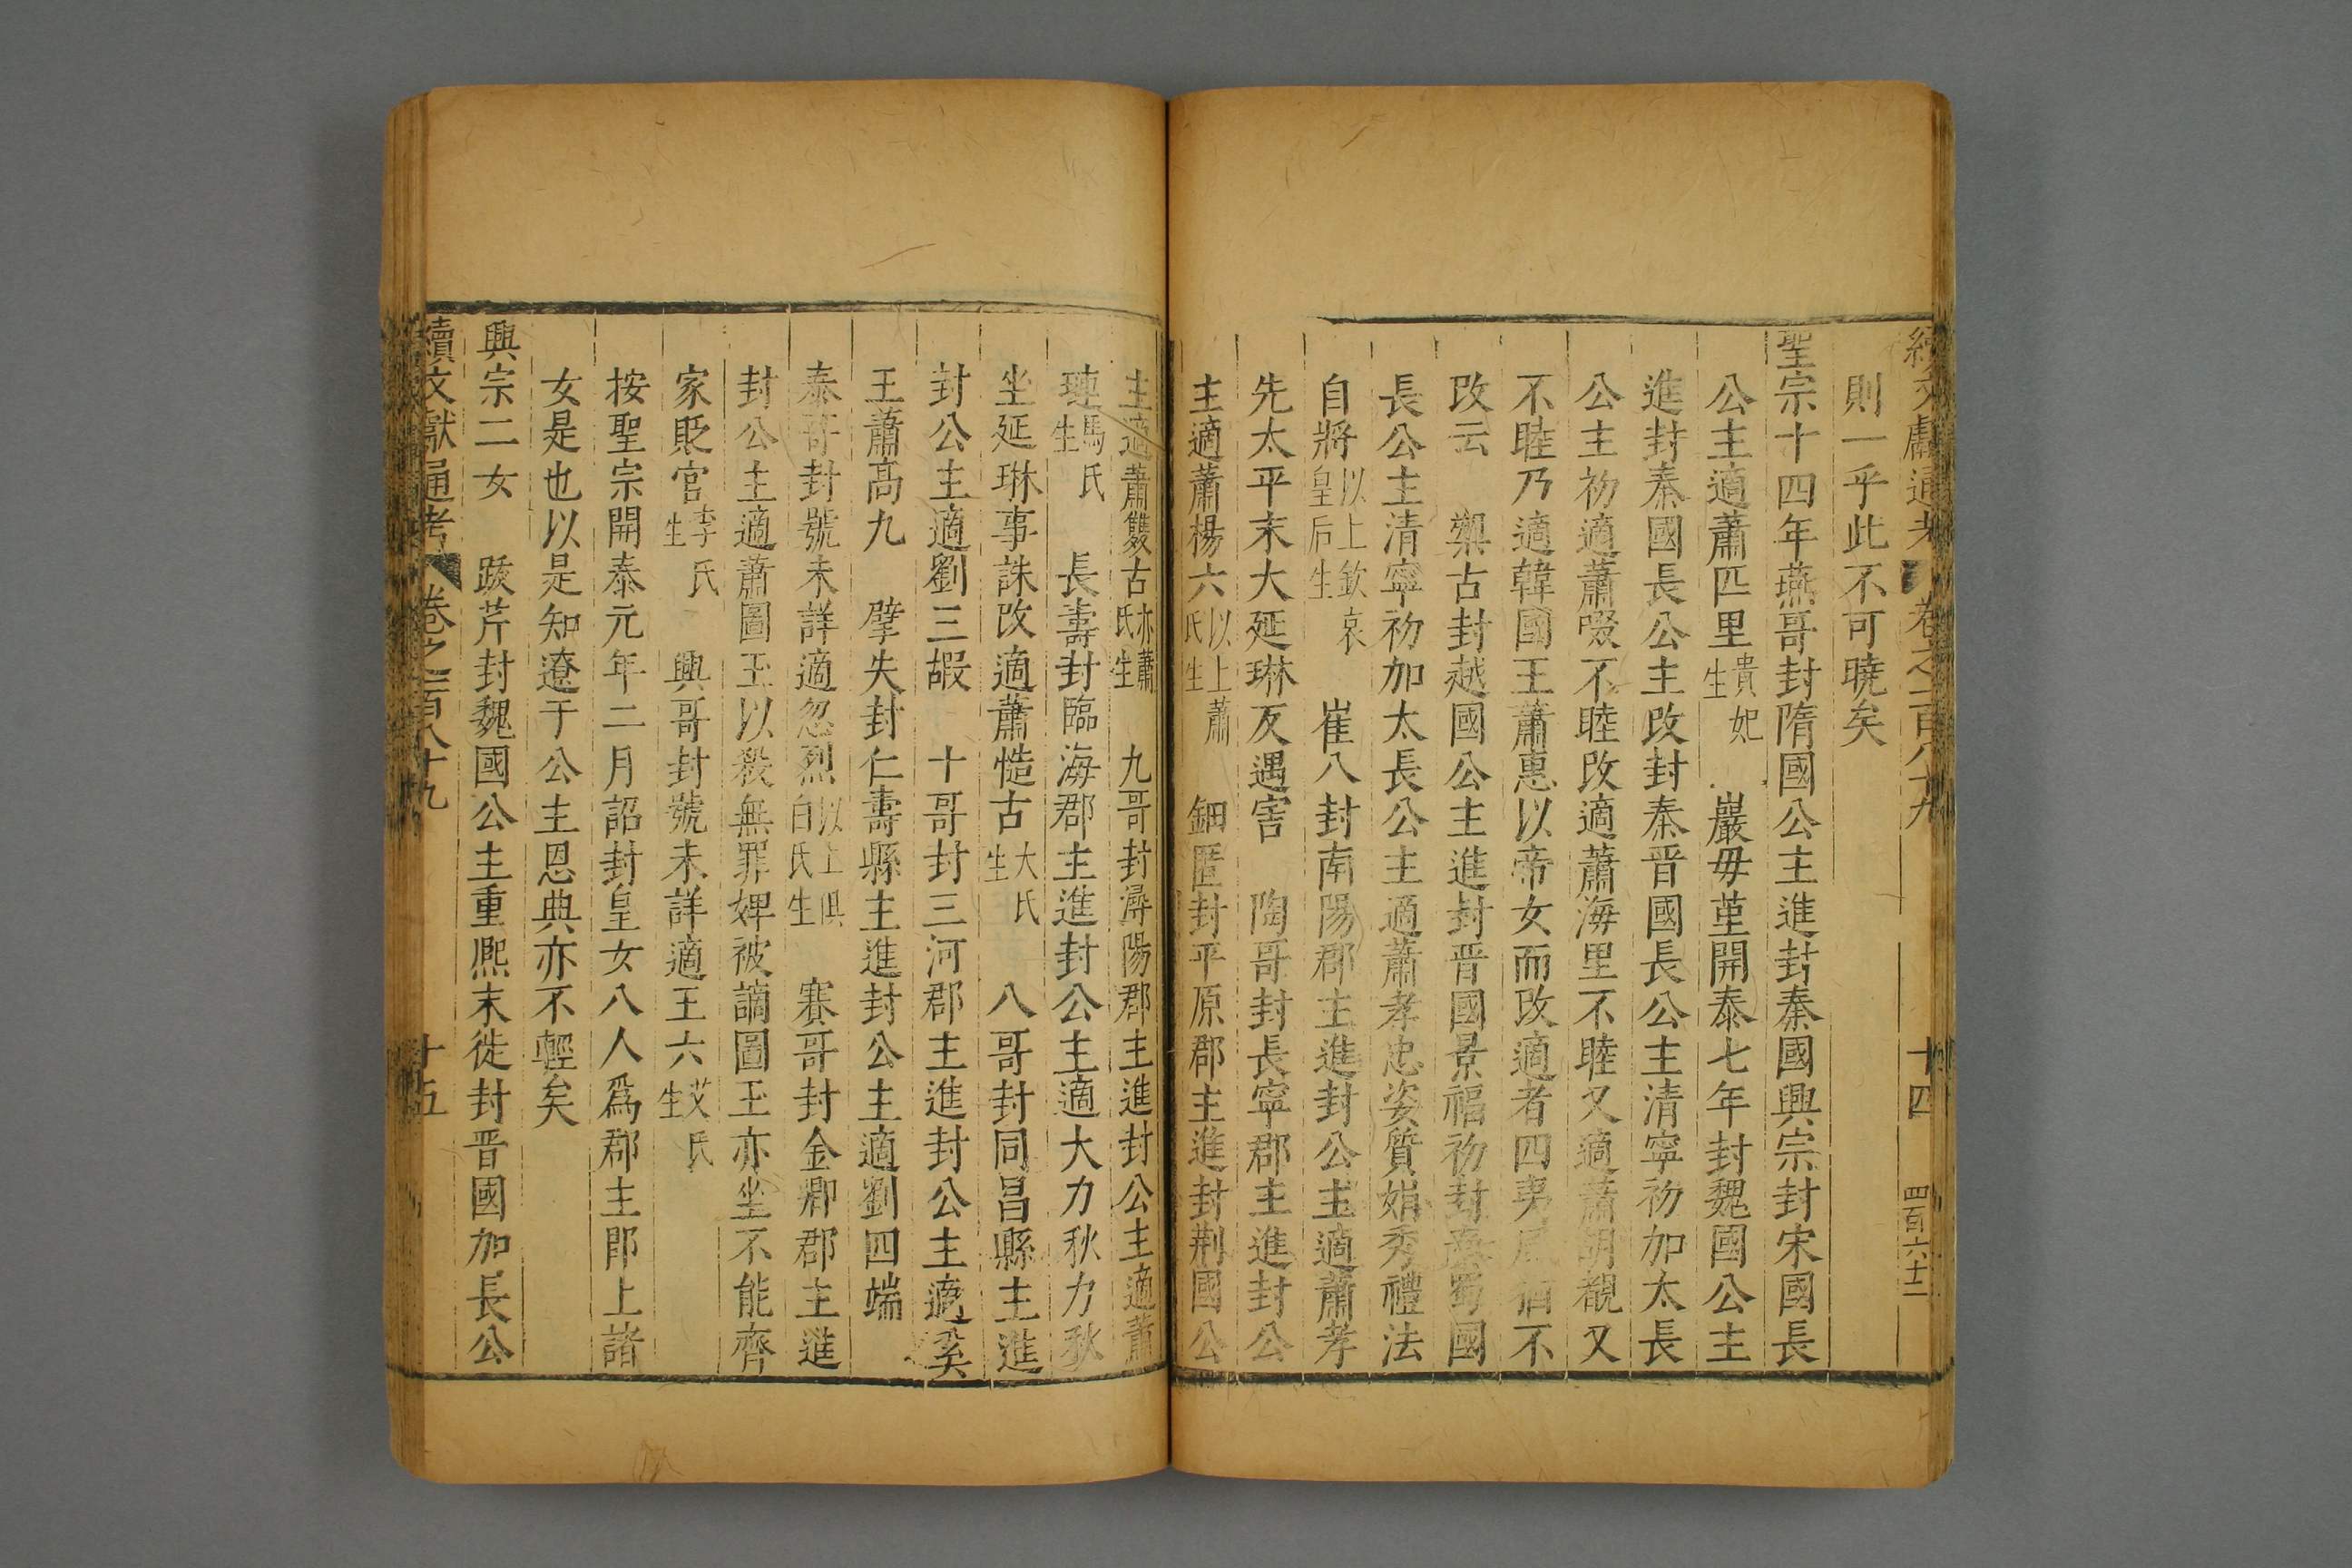 續文獻通考 卷之一百八十九 十四 四百六十二
則一乎此不可曉矣
聖宗十四年燕哥封隋國公主進封秦國興宗封宋國長
公主適蕭匹里貴妃生 巖毋堇開泰七年封魏國公主
進封秦國長公主改封秦晉國長公主清寧初加太長
公主初適蕭啜不睦改適蕭海里不睦又適蕭胡覩又
不睦乃適韓國王蕭惠以帝女而改適者四夷風宿不
改云 槊古封越國公主進封晉國景福初封秦蜀國
長公主清寧初加太長公主適蕭孝忠姿質娟秀禮法
自將以上欽哀皇后生 崔八封南陽郡主進封公主適蕭孝
先太平末大延琳反遇害 陶哥封長寧郡主進封公
主適蕭楊六以上蕭氏生 鈿匿封平原郡主進封荆國公
主適蕭雙古亦蕭氏生 九哥封潯陽郡主進封公主適蕭
璉馬氏生 長壽封臨海郡主進封公主適大力秋力秋
坐延琳事誅改適蕭慥古大氏生 八哥封同昌縣主進
封公主適劉三嘏 十哥封三河郡主進封公主適奚
王蕭高九 擘失封仁壽縣主進封公主適劉四端
泰哥封號未詳適忽烈以上俱白氏生 賽哥封金鄉郡主進
封公主適蕭圖玉以殺無罪婢被謫圖玉亦坐不能齊
家貶官李氏生 興哥封號未詳適王六艾氏生
按聖宗開泰元年二月詔封皇女八人爲郡主卽上諸
女是也以是知遼于公主恩典亦不輕矣
興宗二女 跋芹封魏國公主重熈末徙封晉國加長公
續文獻通考 卷之一百八十九 十五